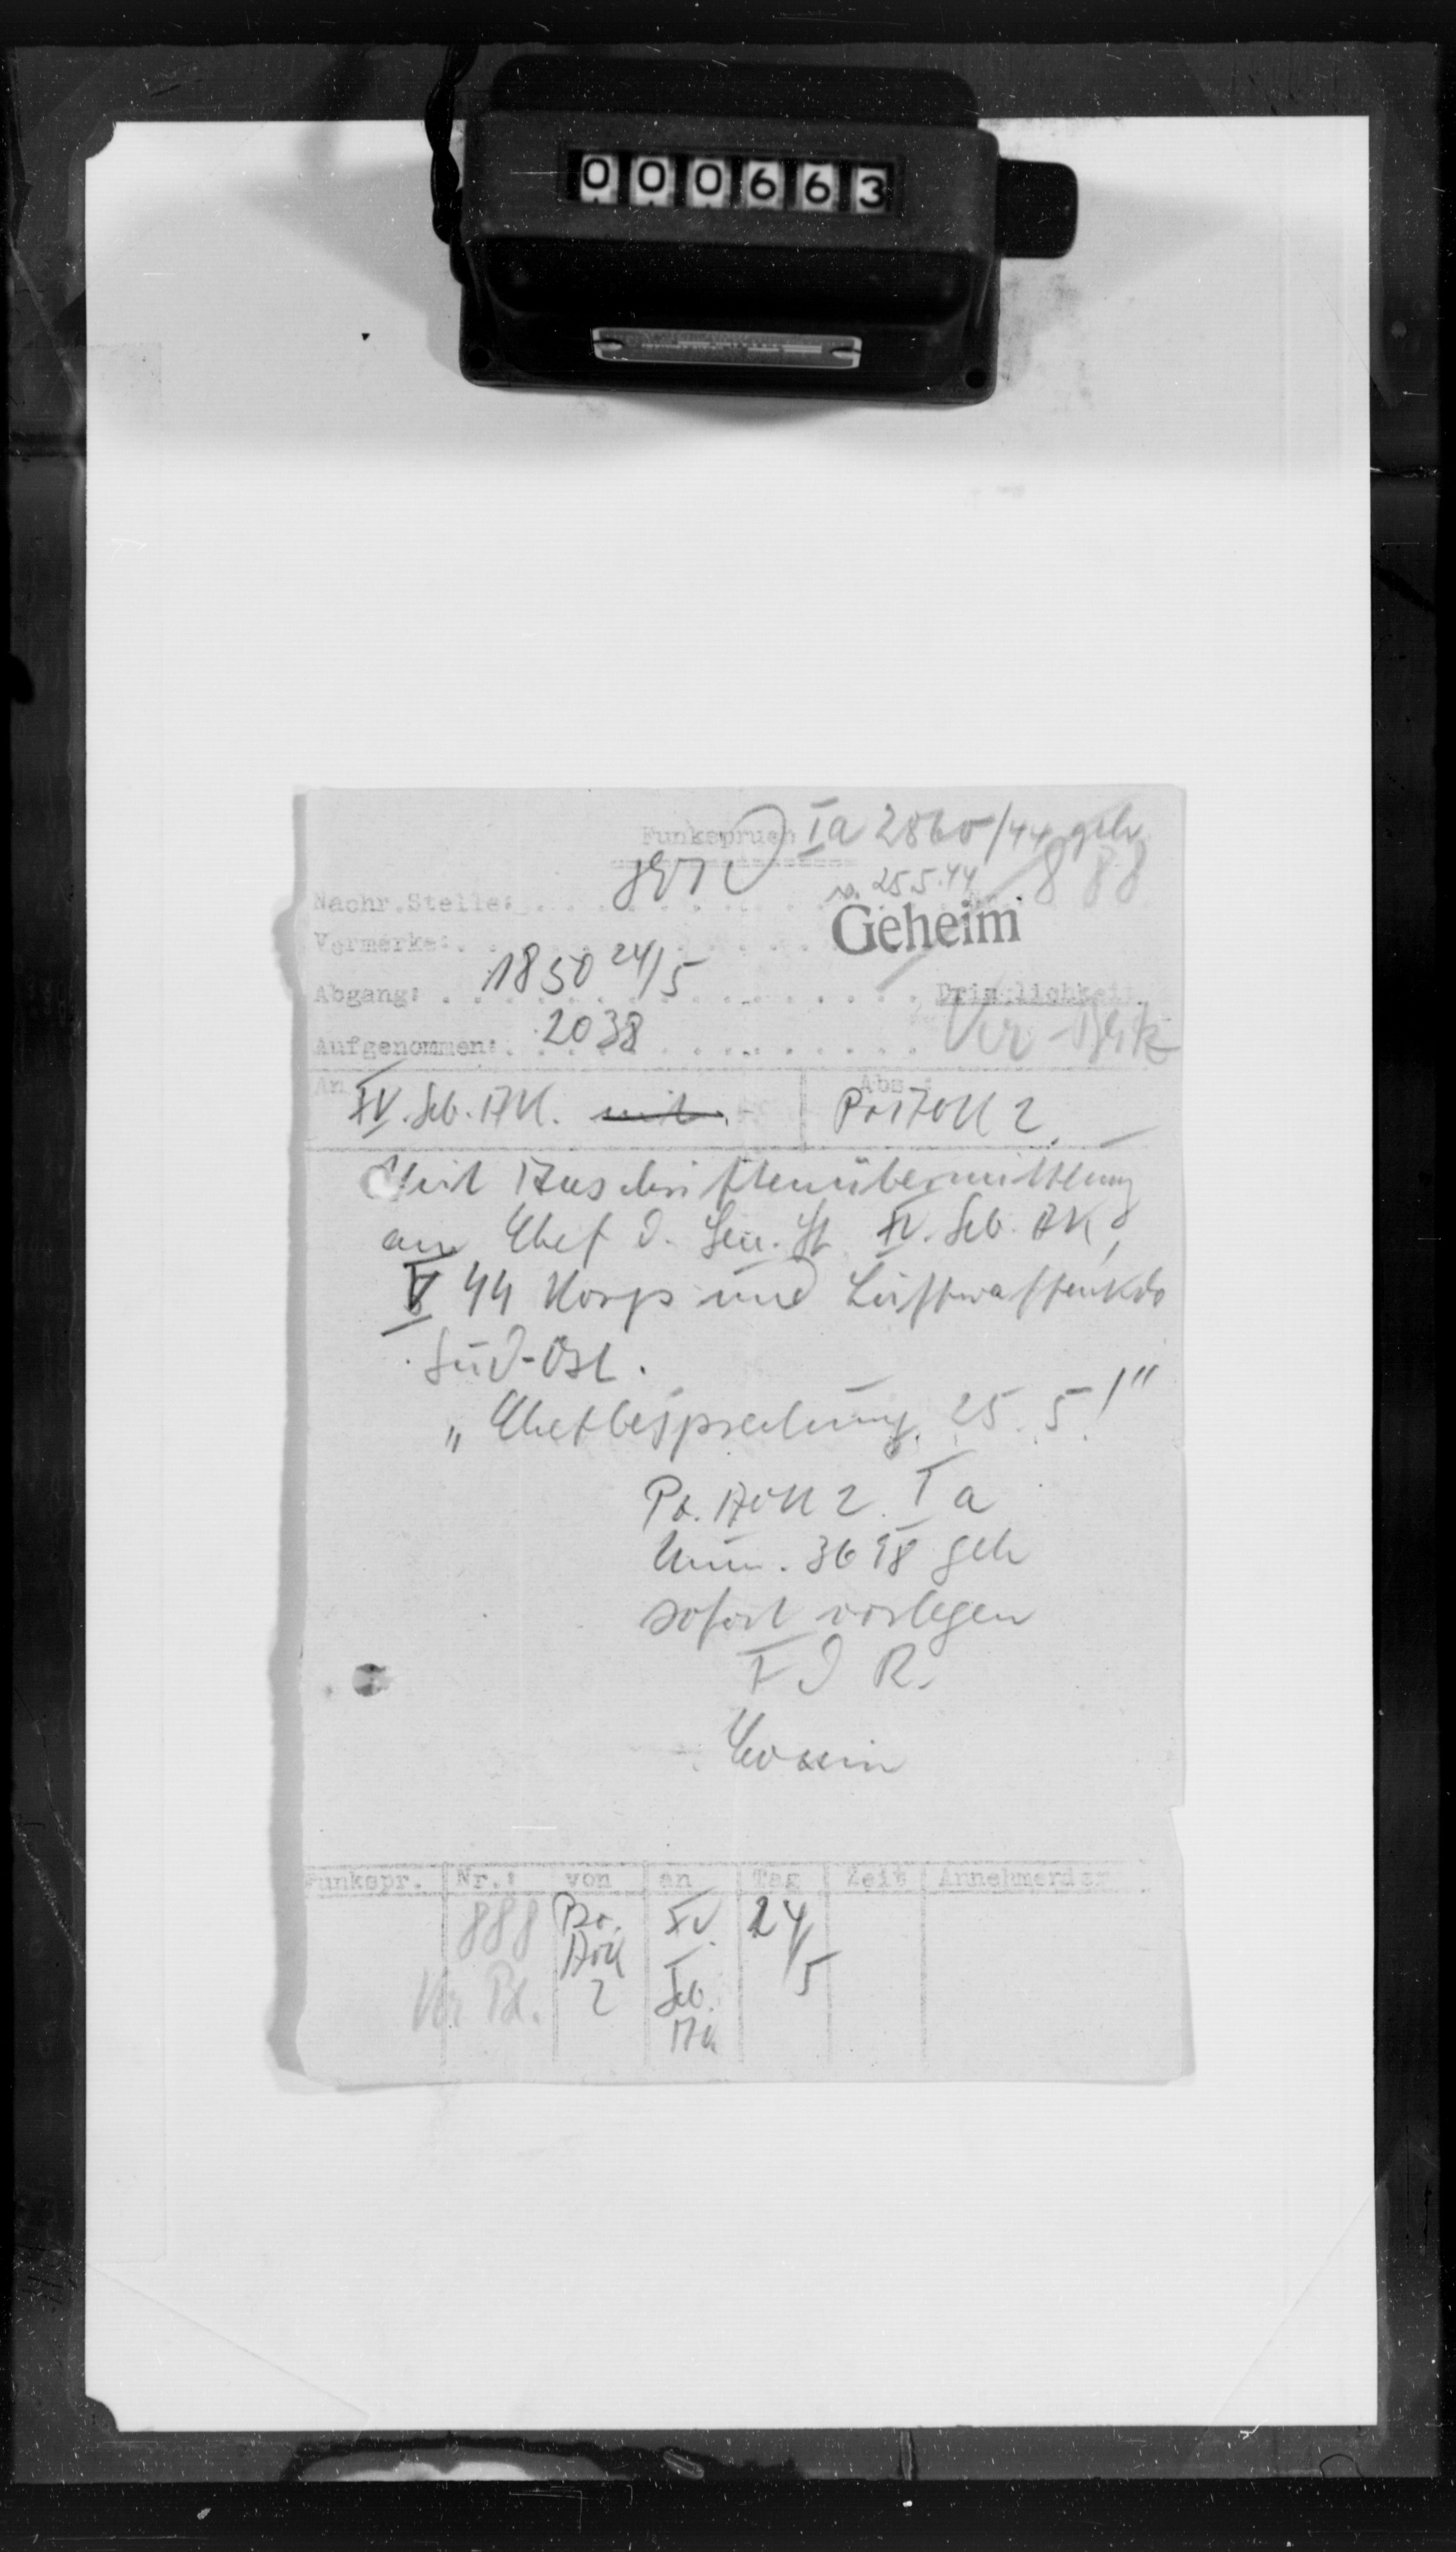 000663
Funkspruch Ia 2860/44 geh
v. 25.5.44 888
Nachr.Stelle:
Geheim
Vermerke:
Abgang: 1850 24/5 Dringlichkeit
Aufgenommen: 2038
An XV. Geb. A.K. Abs.: Pz AOK 2.
Mit Anschriftenübermittlung
an Chef d. Gen. St XV. Geb. AK,
V SS Korps und Luftwaffenkdo
Süd-Ost.
„Chefbesprechung 25. 5!"
Pz. AOK 2 Ia
Num. 3698 geh
sofort vorlegen
F d R.
Funkspr. Nr.: von an Tag Zeit Annehmender
888 Pz. XV. 24/5
AOK Geb.
2 AK